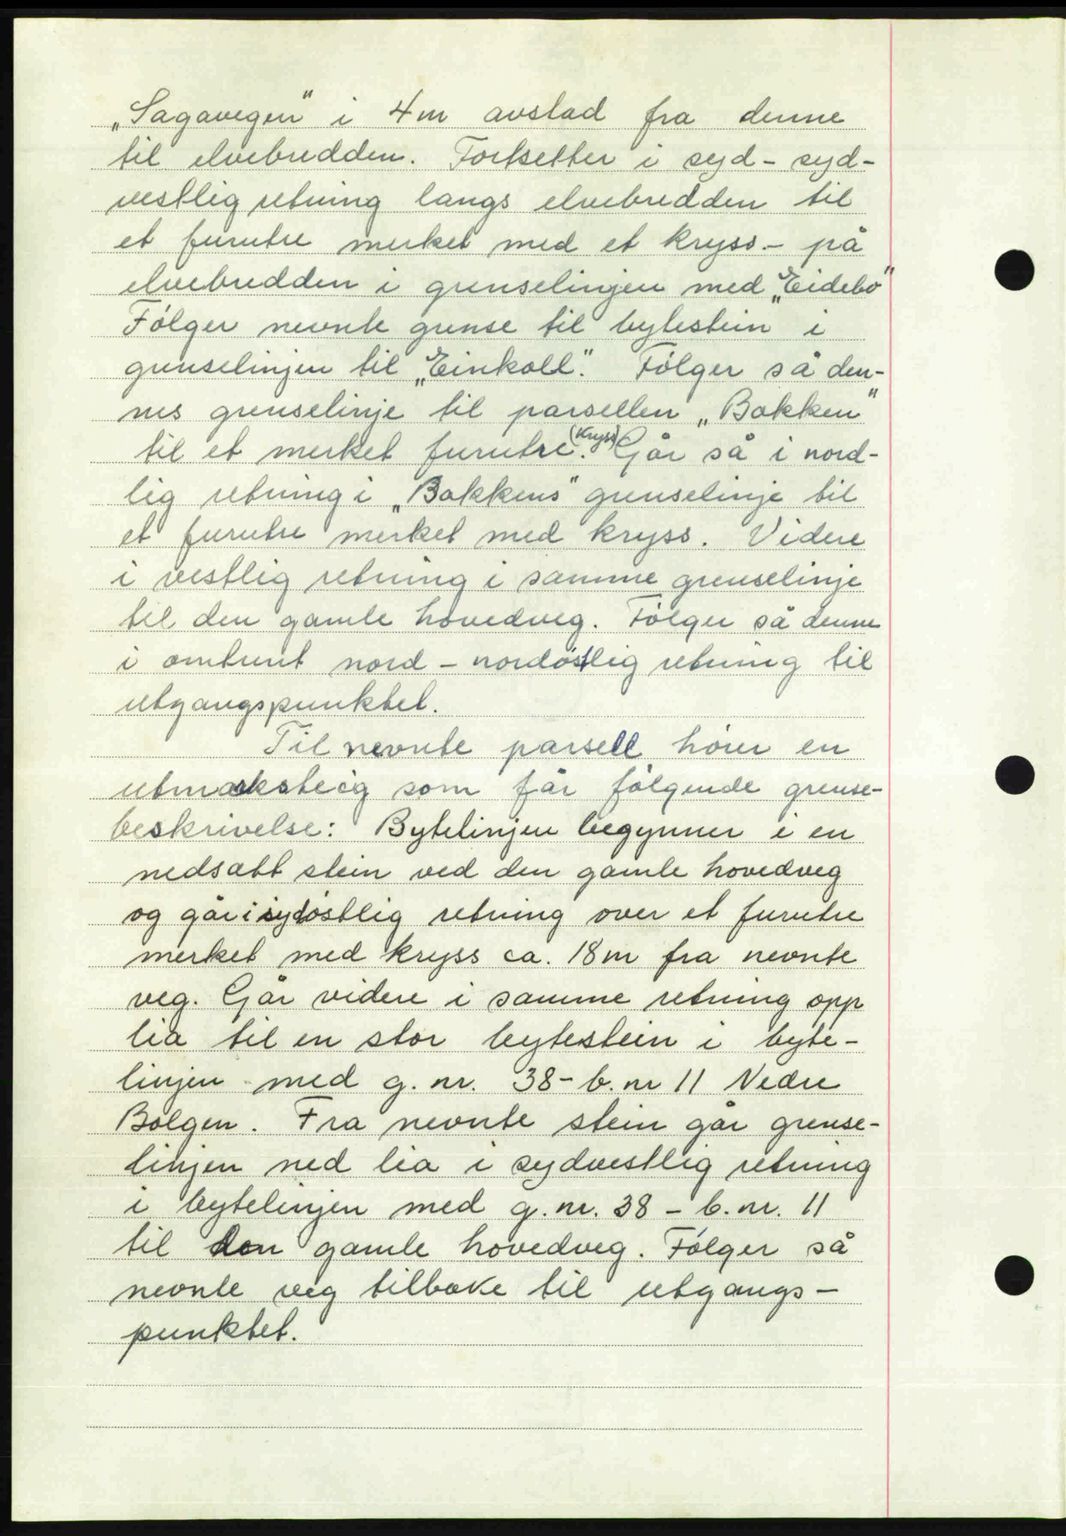 „Sagavegen" i 4m avstad fra denne
til elvebredden. Fortsetter i syd-syd-
vestlig retning langs elvebredden til
et furutre merket med et kryss - på
elvebredden i grenselinjen med „Eidebo"
Følger nevnte grense til bytestein i
grenselinjen til „Einkoll". Følger så den-
nes grenselinje til parsellen „Bakken"
til et merket furutre. (Kryss) Går så i nord-
lig retning i „Bakkens" grenselinje til
et furutre merket med kryss. Videre
i vestlig retning i samme grenselinje
til den gamle hovedveg. Følger så denne
i omtrent nord - nordøstlig retning til
utgangspunktet.
Til nevnte parsell hører en
utmarksteig som får følgende grense-
beskrivelse: Bytelinjen begynner i en
nedsatt stein ved den gamle hovedveg
og går i sydøstlig retning over et furutre
merket med kryss ca. 18m fra nevnte
veg. Går videre i samme retning opp
lia til en stor bytestein i byte-
linjen med g. nr. 38 - b. nr 11 Nedre
Bolgen. Fra nevnte stein går grense-
linjen ned lia i sydvestlig retning
i bytelinjen med g. nr. 38 - b. nr. 11
til den gamle hovedveg. Følger så
nevnte veg tilbake til utgangs-
punktet.